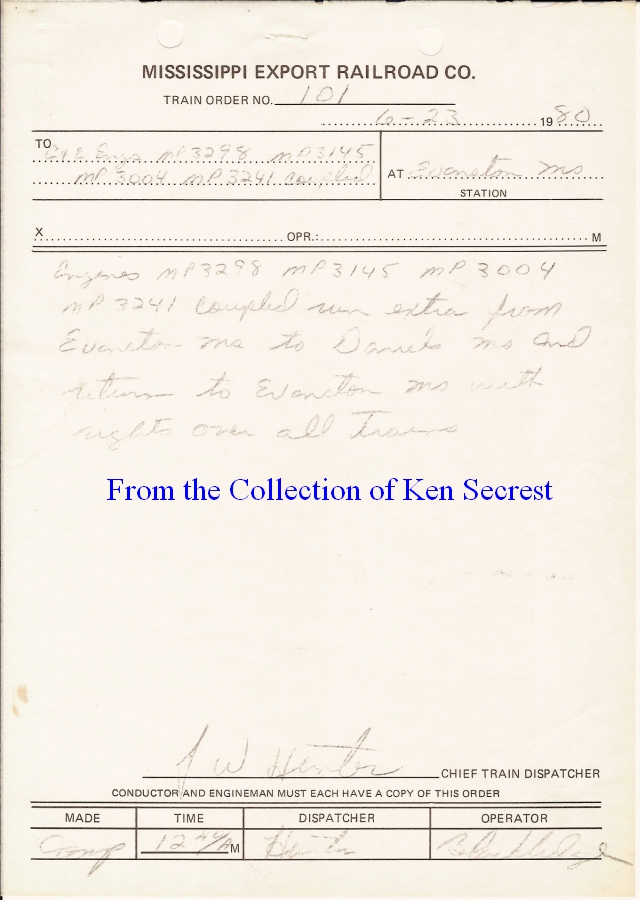 MISSISSIPPI EXPORT RAILROAD CO.
TRAIN ORDER NO. 101
6-23 1980
TO C&E Engs MP3298 MP3145
MP 3004 MP 3241 coupled
AT Evanston Ms
STATION
X OPR.: M
Engines MP3298 MP3145 MP3004
MP 3241 coupled run extra from
Evanston Ms to Daniels Ms and
return to Evanston Ms with
rights over all trains
From the Collection of Ken Secrest
J W
CHIEF TRAIN DISPATCHER
CONDUCTOR AND ENGINEMAN MUST EACH HAVE A COPY OF THIS ORDER
MADE TIME DISPATCHER OPERATOR
Comp 12 M